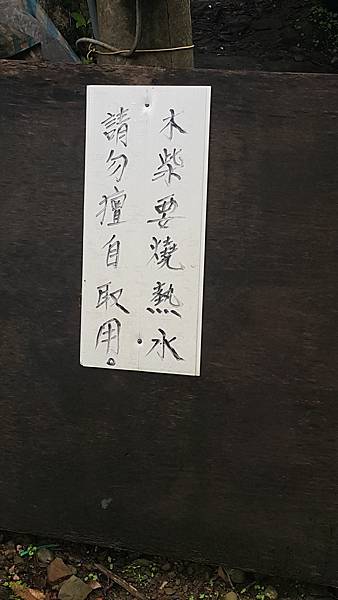 木柴要燒熱水
請勿擅自取用。